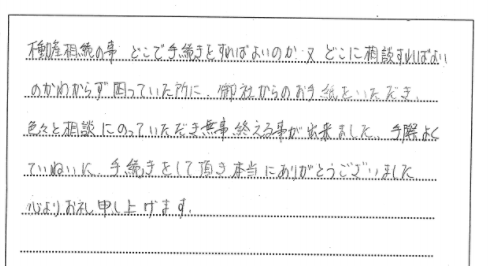 不動産相続の事 どこで手続きをすればよいのか 又 どこに相談すればよい
のかわからず困っていた所に、御社からのお手紙をいただき、
色々と相談にのっていただき無事終える事が出来ました。手際よく
ていねいに、手続きをして頂き本当にありがとうございました
心よりお礼申し上げます。